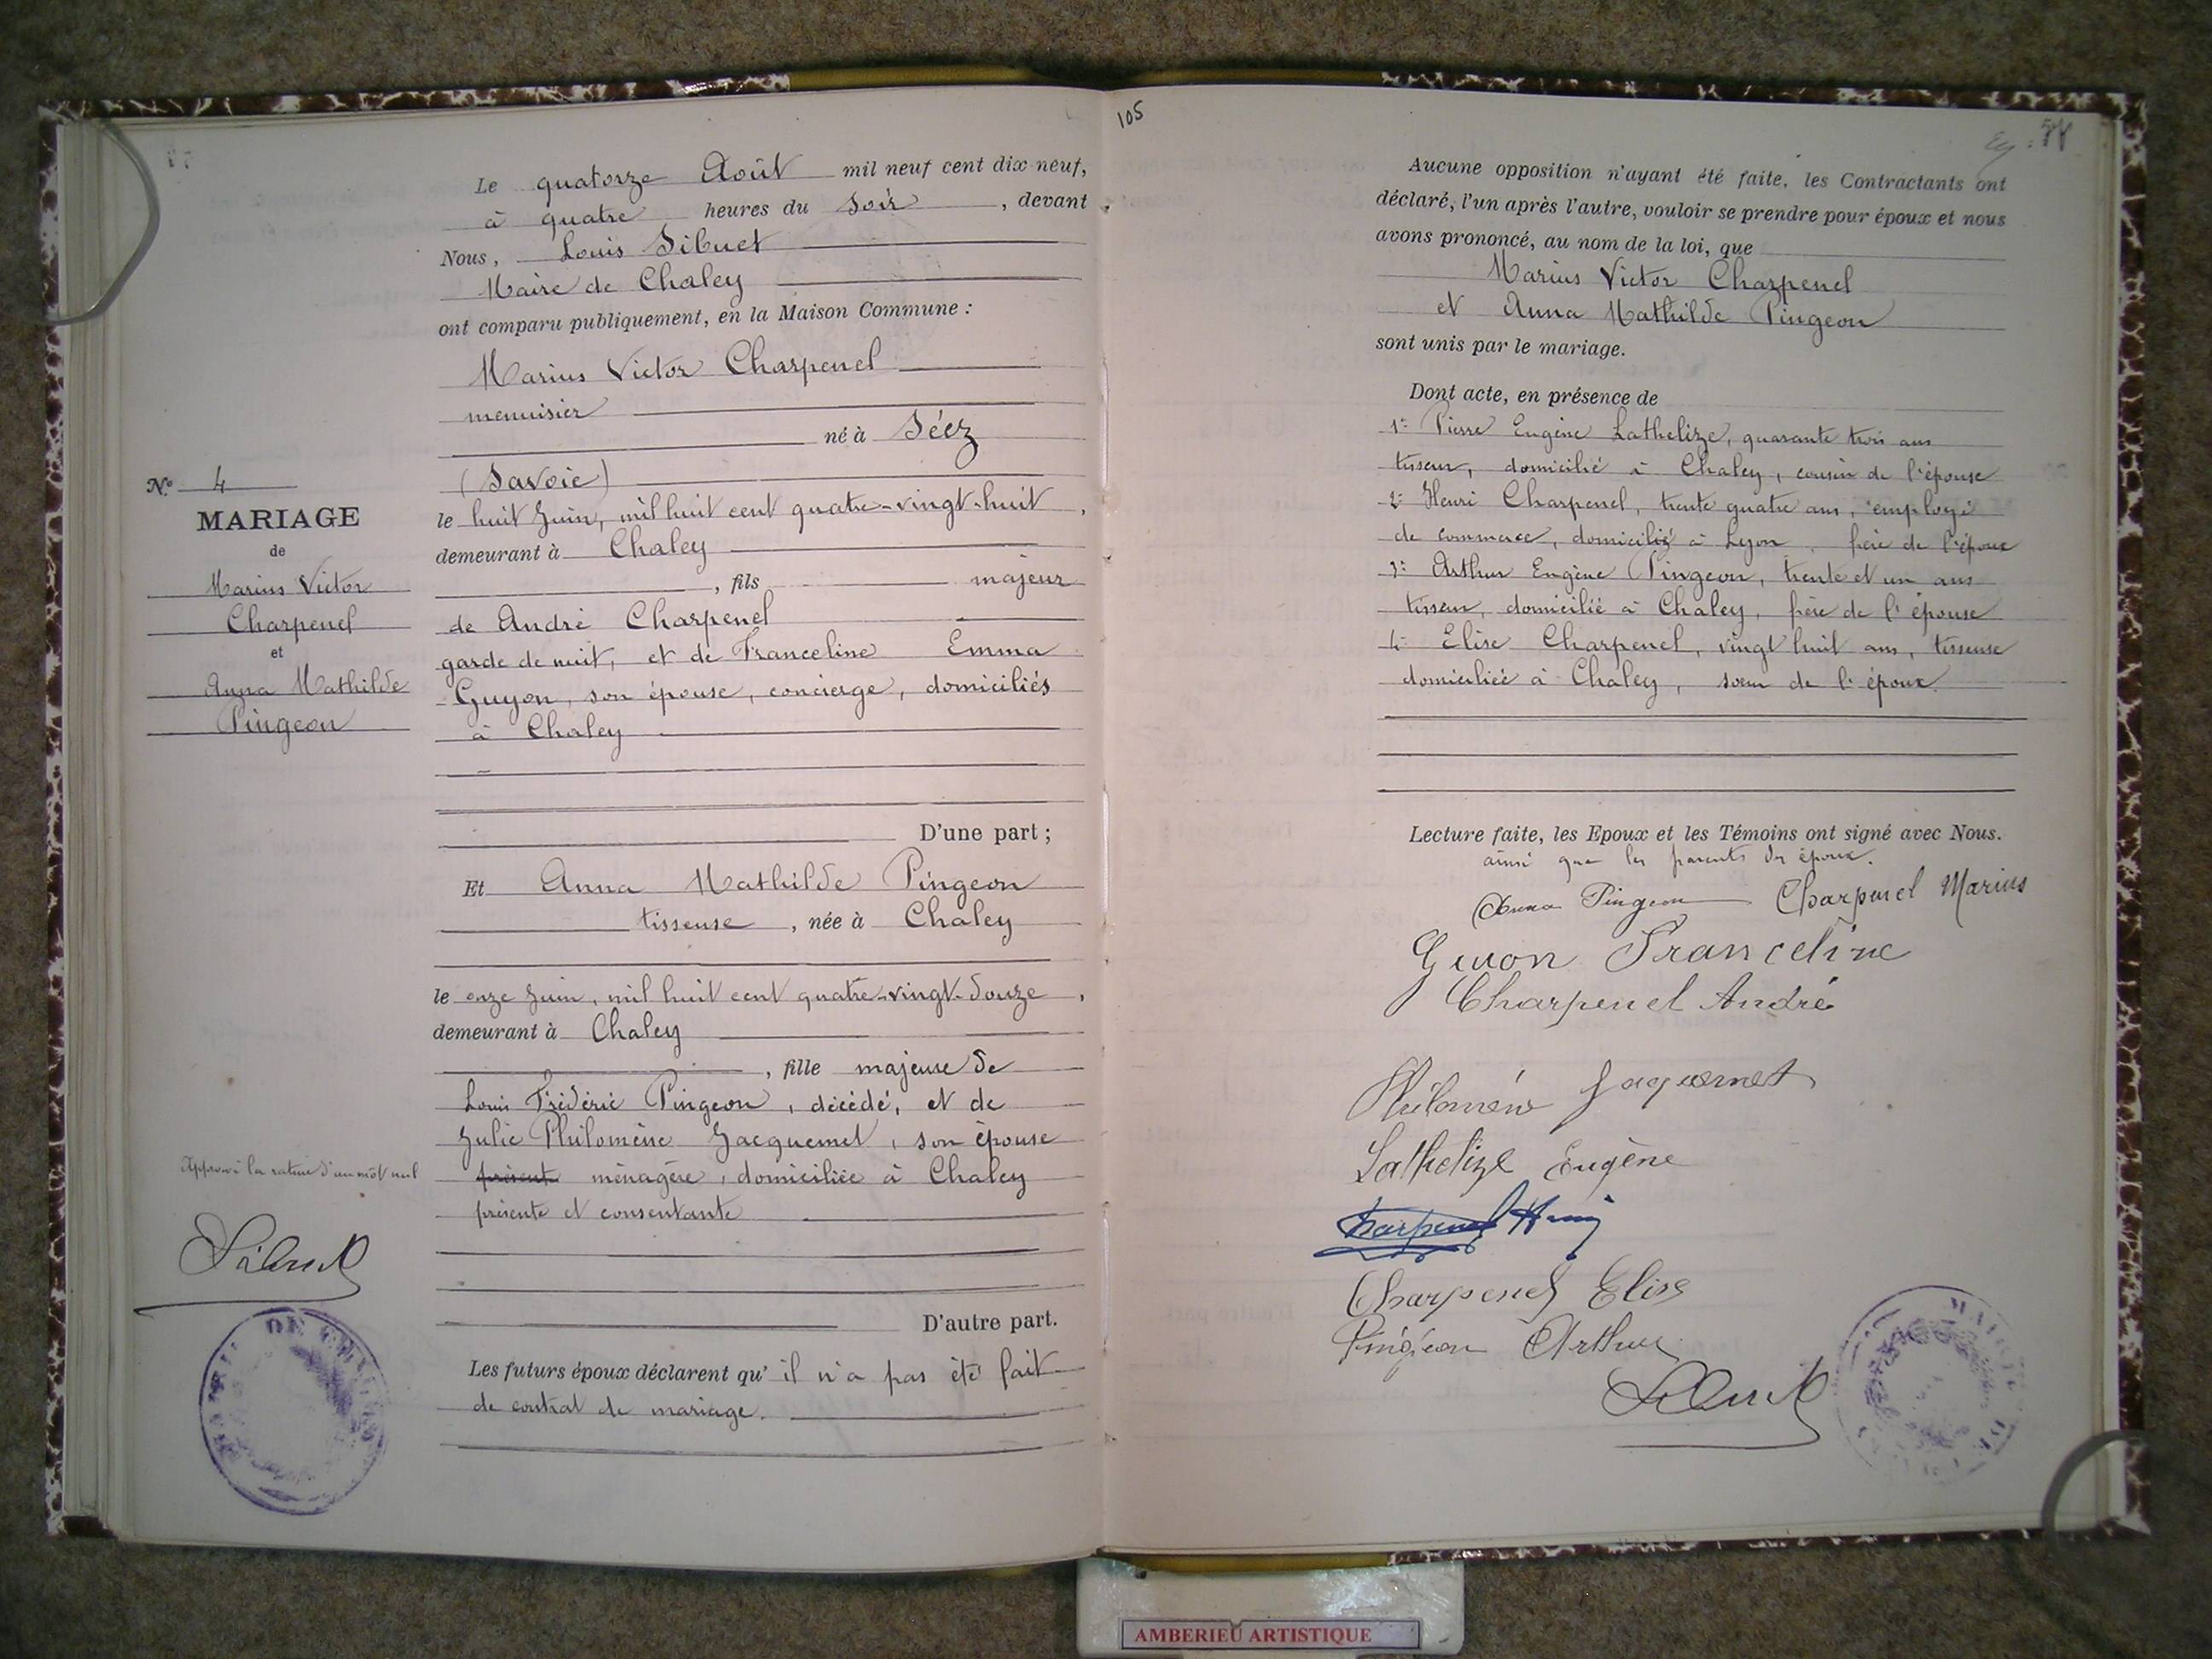 Le quatorze Août mil neuf cent dix neuf,
à quatre heures du soir, devant
Nous, Louis Sibuet
Maire de Chaley
ont comparu publiquement, en la Maison Commune :
Marius Victor Charpenel
menuisier
né à Séez
(Savoie)
le huit Juin, mil huit cent quatre-vingt-huit,
demeurant à Chaley
, fils majeur
de André Charpenel
garde de nuit, et de Franceline Emma
Guyon, son épouse, concierge, domiciliés
à Chaley
D'une part ;
Et Anna Mathilde Pingeon
tisseuse, née à Chaley
le onze Juin, mil huit cent quatre-vingt-douze,
demeurant à Chaley
, fille majeure de
Louis Frédéric Pingeon, décédé, et de
Julie Philomène Jacquemet, son épouse
présente ménagère, domiciliée à Chaley
présente et consentante
D'autre part.
Les futurs époux déclarent qu'il n'a pas été fait
de contrat de mariage.
N° 4
MARIAGE
de
Marius Victor
Charpenel
et
Anna Mathilde
Pingeon
Approuvé la rature d'un mot nul
Sibuet
105
Aucune opposition n'ayant été faite, les Contractants ont
déclaré, l'un après l'autre, vouloir se prendre pour époux et nous
avons prononcé, au nom de la loi, que
Marius Victor Charpenel
et Anna Mathilde Pingeon
sont unis par le mariage.
Dont acte, en présence de
1° Pierre Eugène Lathelize, quarante trois ans
tisseur, domicilié à Chaley, cousin de l'épouse
2° Henri Charpenel, trente quatre ans, employé
de commerce, domicilié à Lyon, frère de l'époux
3° Arthur Eugène Pingeon, trente et un ans
tisseur, domicilié à Chaley, frère de l'épouse
4° Elise Charpenel, vingt huit ans, tisseuse
domiciliée à Chaley, soeur de l'époux.
Lecture faite, les Epoux et les Témoins ont signé avec Nous.
ainsi que les parents des époux.
Anna Pingeon Charpenel Marius
Guyon Franceline
Charpenel André
Philomène Jaquemet
Lathelize Eugène
Charpenel Henri
Charpenel Elise
Pingeon Arthur
Sibuet
AMBERIEU ARTISTIQUE